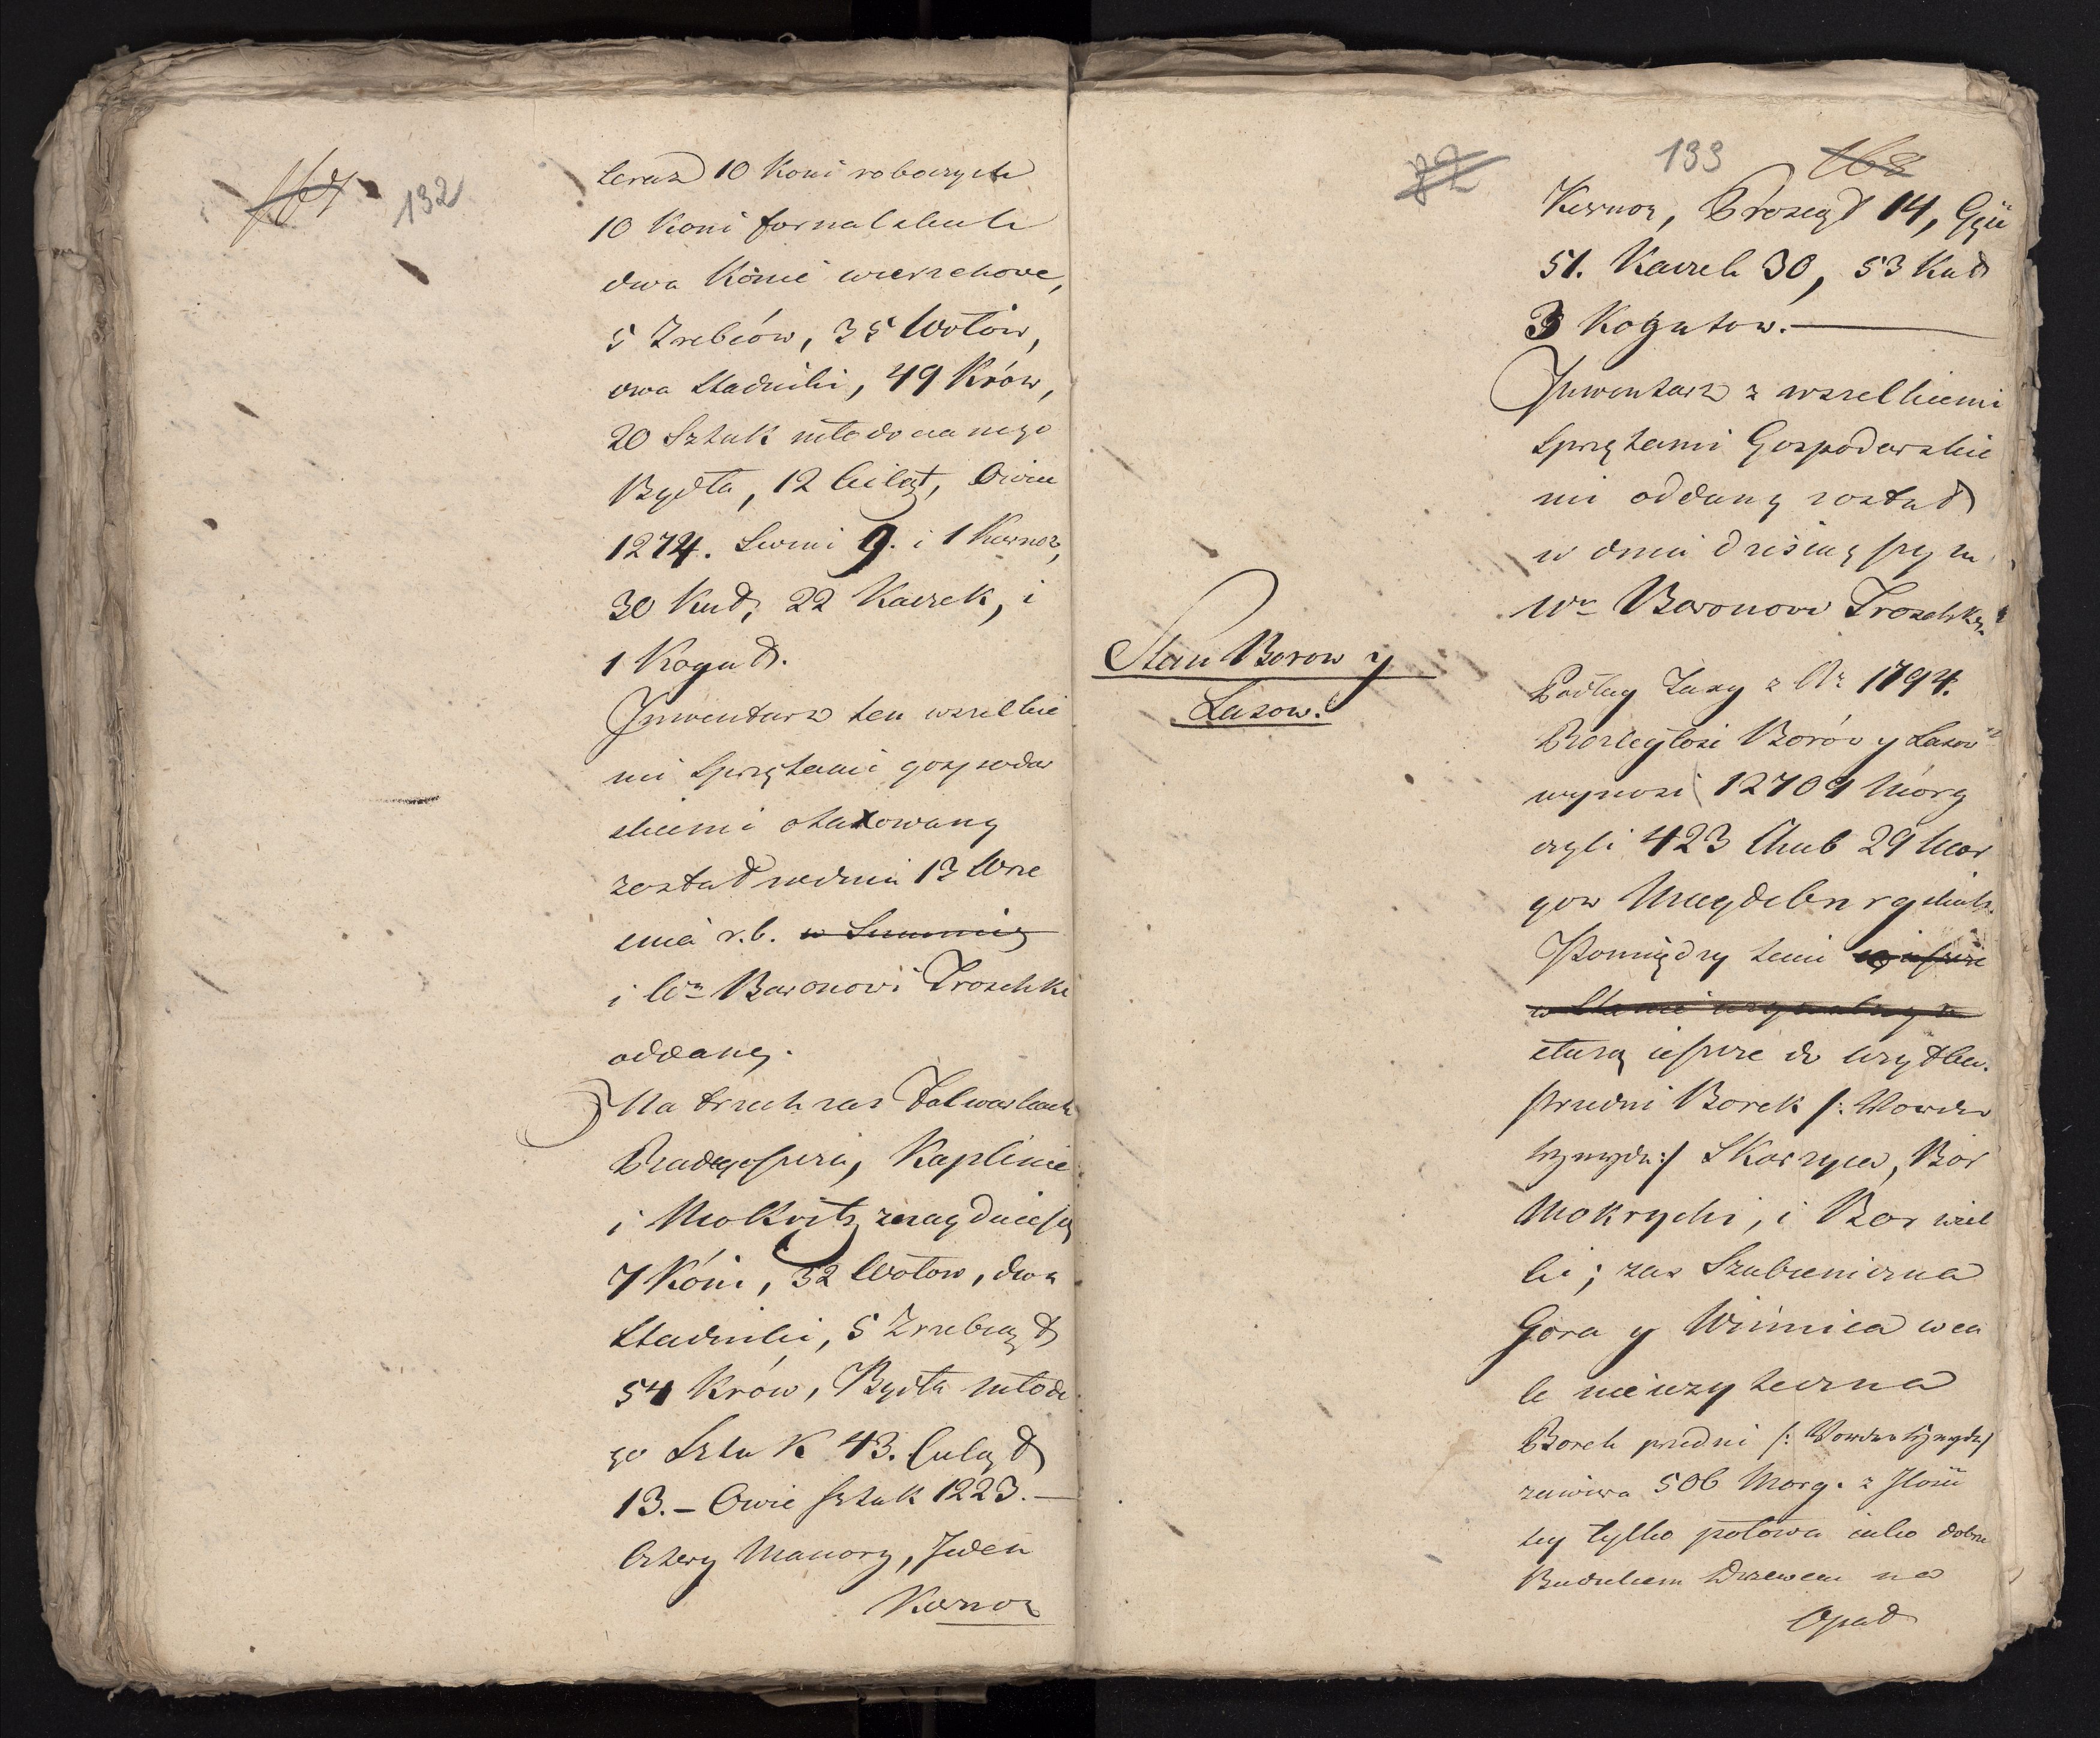 132
teraz 10 Koni roboczych
10 Koni fornalskich
dwa Konie wierzchowe,
5 Zrebców, 35 Wołów,
dwa Stadniki, 49 Krów,
20 Sztuk młodocianego
Bydła, 12 Cieląt, Owiec
1274. Swini 9. i 1 Kiernoz,
30 Kur, 22 Kaczek, i
1 Kogut.
Jnwentarz ten wszelkie
mi Sprzętami gospodar
skiemi otaxowany
został w dniu 13 Wrze
śnia r.b. w Summie
i Wu Baronowi Troschke
oddany.
Na trzech zas Folwarkach
Kaplinie
i Mokritz znayduie się
7 Koni, 32 Wołow, dwa
Stadniki, 5 Zrebiąt
54 Krów, Bydła młode
go Sztuk 43. Cieląt
13. – Owie sztuk 1223. –
Cztery Maciory, Jeden
Kiernoz
133
168
Kiernoz, Prosiąt 14, Gęsi
51. Kaczek 30, 53 Kur
3 Kogutow. –
Jnwentarz z wszelkiemi
Sprzętami Gospodarskie
mi oddany został
w dniu dzisieyszym
Wu Baronowi Troschke.
Stan Borow y
Lasow.
Podług Taxy z Ar 1794.
Rozległosc Borów y Lasow
wynosi 12709 Mórg
czyli 423 Chub 29 Mor
gow Magdeburgskich.
Pomiędzy temi
w Stanie
służą iescze do uzytku.
przedni Borek /: Vorder
:/ Skorzyca, Bor
Mokrycki, i Bor wiel
ki; zas Szubieniczna
Gora y Winnica wca
le nieuzyteczna
Borek przedni
zawiera 506 Morg. z Jlosci
tey tylko połowa iako dobre
Budulcem Drzewem na
Opał